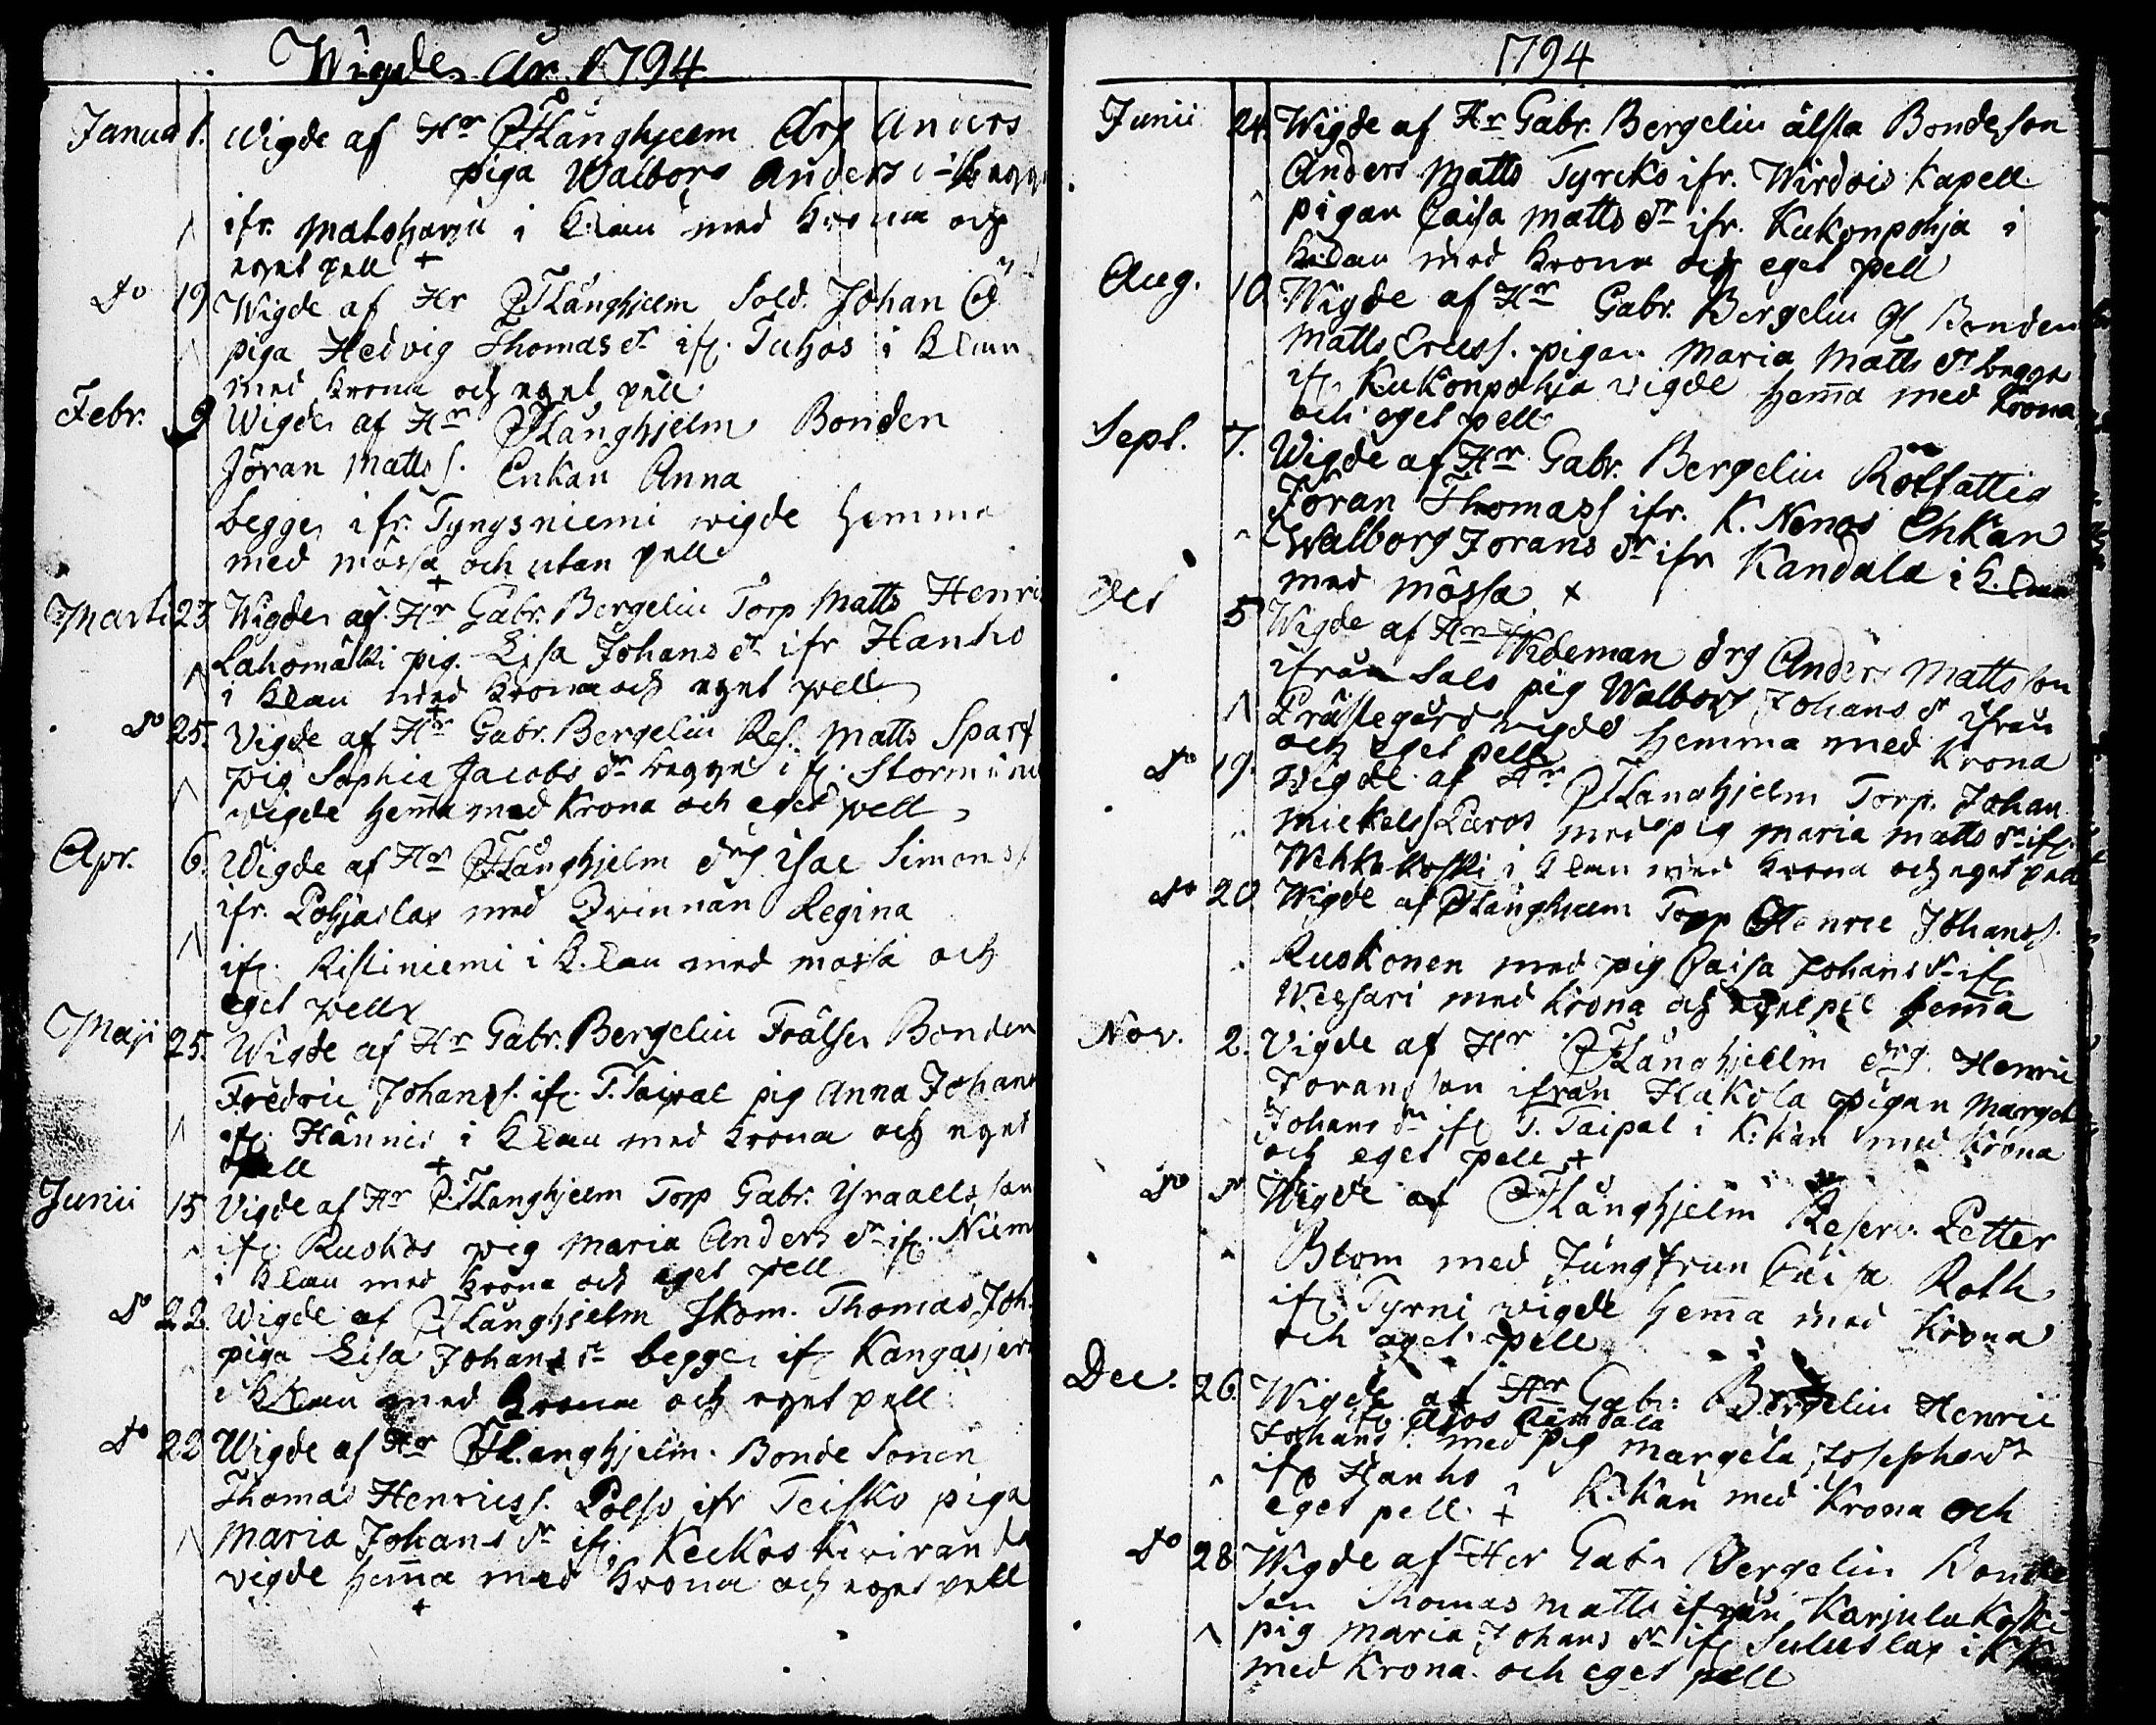 Wigde År 1794
Januar 1. Wigde af Hr Långhjelm Drg Anders
piga Walborg Anders begge
ifr. Matsharju i Klan med Krona och
eget pell +
Do 19 Wigde af Hr Långhjelm Sold. Johan
piga Hedvig Thomas dr ifr. Tuhos i Klan
med Krona och eget pell
Febr. 9 Wigde af Hr Långhjelm Bonden
Jöran Matts s. Enkan Anna
begge ifr. Tynysniemi wigde hemma
med mössa och utan pell
Marti 23 Wigde af Hr Gabr. Bergelin Torp Matts Henri
Lahomäki pig. Lisa Johans dr ifr Hanho
i Klan med Krona och eget pell
do 25. Vigde af Hr Gabr. Bergelin Res. Matts Sparf
pig Sophia Jacobs dr begge ifr. Storminne
wigde hemma med Krona och eget pell
Apr. 6. Wigde af Hr Långhjelm drg Isac Simons s.
ifr. Pohjaslax med Qvinnan Regina
ifr. Ristiniemi i K.lan med mössa och
eget pell
Maji 25. Wigde af Hr Gabr. Bergelin Frälse Bonden
Fredric Johans s. ifr. T. Taipal pig Anna Johans
ifr. Hännis i Klan med Krona och eget
pell +
Junii 15 Vigde af Hr Långhjelm Torp Gabr. Israels son
ifr. Ruokos pig Maria Anders dr ifr. Niem
i Klan med Krona och eget pell
do 22. Wigde af Långhjelm Skom. Thomas Joh.
piga Lisa Johans dr begge ifr Kangasjer
i Klan med Krona och eget pell
do 22 Wigde af Hr Långhjelm Bonde Sonen
Thomas Henrics s. Polso ifr Teisko piga
Maria Johans dr ifr. Keckos Kiviranda
vigde hemma med Krona och eget pell
+
1794
Junii 24. Wigde af Hr Gabr. Bergelin älsta Bonde son
Anders Matts Tyrcko ifr. Wirdois Kapell
pigan Caisa Matts dr ifr. Kukonpohja i
Kedan med Krona och eget pell
Aug. 10 Wigde af Hr Gabr. Bergelin Gl Bonden
Matts Erics s. pigan Maria Matts dr begge
ifr Kukonpohja vigde hemma med Krona
och eget pell
Sept. 7. Wigde af Hr Gabr. Bergelin Rotfattig
Jöran Thomas s ifr. K. Nenos Enkan
Walborg Jorans dr ifr Kandala i K.lan
med mössa +
Oct 5 Wigde af Hr Wideman drg Anders Matts son
ifrån Salo pig Walborg Johans dr ifrån
Prästegård wigde hemma med Krona
och eget pell
do 19. Wigde af Hr Långhjelm Torp. Johan
Mickels s Laros med pig Maria Matts dr ifr.
Wehkakoski i Klan med Krona och eget pell
do 20 Wigde af Långhjelm Torp Henric Johans s.
Ruokonen med pig Caisa Johans dr ifr
Wehsari med Krona och eget pell hemma
Nov. 2. Vigde af Hr Långhjelm drg. Henric
Joransson ifrån Hakola pigan Margeta
Johans dr ifr T. Taipal i K:kan med Krona
och eget pell +
do do Wigde af Långhjelm Reserv. Petter
Blom med Jungfrun Caisa Roth
ifr Tyrni vigde hemma med Krona
och eget pell
Dec. 26. Wigde af Hr Gabr. Bergelin Henric
Johans s. med pig Margeta Josephs dr
ifr Hanho i K:kan med Krona och
eget pell +
do 28 Wigde af Her Gabr Bergelin Bonde
son Thomas Matts ifrån Karjulakoski
pig Maria Johans dr ifr Suluslax i K K
med Krona och eget pell